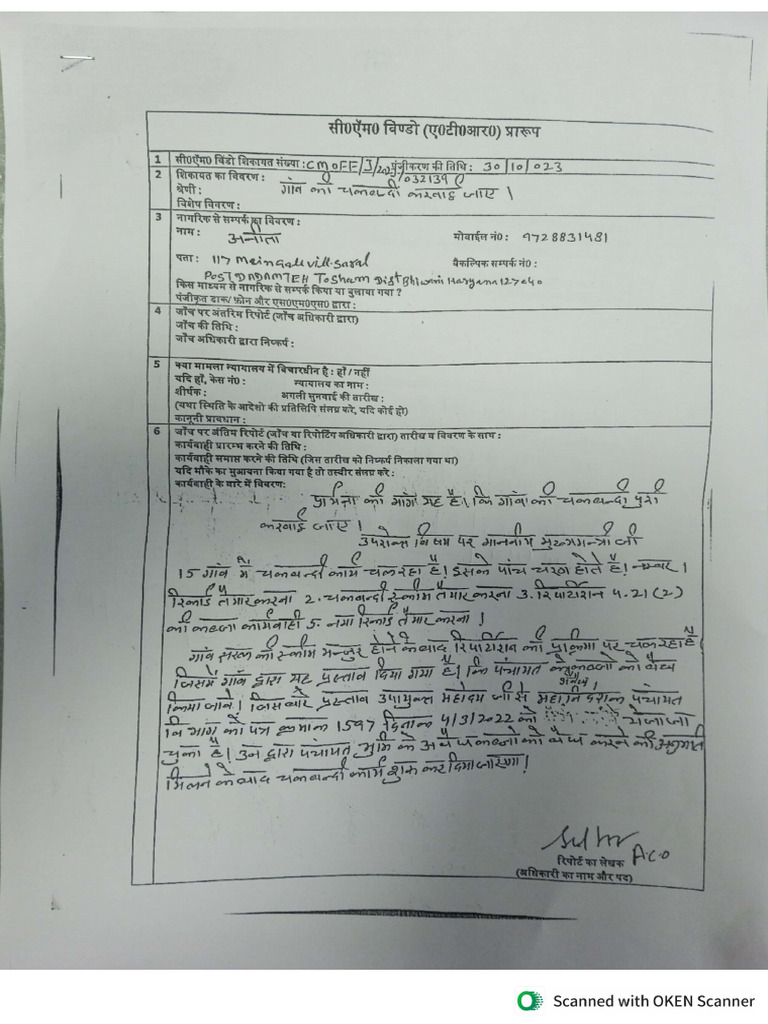 सी0ऍम0 विण्डो (ए0टी0आर0) प्रारूप
1 सी0ऍम0 विंडो शिकायत संख्या : CMOFF/J/202 पंजीकरण की तिथि : 30/10/023
2 शिकायत का विवरण : /032139
श्रेणी : गांव की चकबन्दी करवाई जाए।
विशेष विवरण :
3 नागरिक से सम्पर्क का विवरण :
नाम : अनीता मोबाईल नं0 : 9728831481
पता : 117 Meingali vill. Saral वैकल्पिक सम्पर्क नं0 :
POST DADAM TEH Tosham Dist Bhiwani Haryana 127040
किस माध्यम से नागरिक से सम्पर्क किया या बुलाया गया ?
पंजीकृत डाक/ फ़ोन और एस0एम0एस0 द्वारा :
4 जाँच पर अंतरिम रिपोर्ट (जाँच अधिकारी द्वारा)
जाँच की तिथि :
जाँच अधिकारी द्वारा निष्कर्ष :
5 क्या मामला न्यायालय में विचारधीन है : हाँ / नहीं
यदि हाँ, केस नं0 : न्यायालय का नाम :
शीर्षक : अगली सुनवाई की तारीख :
(यथा स्थिति के आदेशो की प्रतिलिपि संलग्न करे, यदि कोई हो)
कानूनी प्रावधान :
6 जाँच पर अंतिम रिपोर्ट (जाँच या रिपोर्टिंग अधिकारी द्वारा) तारीख व विवरण के साथ :
कार्यवाही प्रारम्भ करने की तिथि :
कार्यवाही समाप्त करने की तिथि (जिस तारीख को निष्कर्ष निकाला गया था)
यदि मौके का मुआयना किया गया है तो तस्वीर संलग्न करे :
कार्यवाही के बारे में विवरण:
प्रार्थना की मांग यह है। कि गांव की चकबन्दी पुरी
करवाई जाए।
उपरोक्त विषय पर माननीय मुख्यमन्त्री जी
15 गांव में चकबन्दी कार्य चल रहा है। इसके पांच चरण होते है। नम्बर 1
रिकार्ड तैयार करना 2. चकबन्दी स्कीम तैयार करना 3. रिपार्टिशन 4. 21(2)
की कब्जा कार्यवाही 5. नया रिकार्ड तैयार करना।
गांव सरल की स्कीम मन्जुर होने के बाद रिपार्टिशन की प्रक्रिया पर चल रहा है
जिसमें गांव द्वारा यह प्रस्ताव दिया गया है। कि पंचायत के कब्जो को वैध
किया जावे। जिस बारे प्रस्ताव उपायुक्त महोदय जी से महानिदेशक पंचायत
विभाग को पत्र क्रमांक 1597 दिनांक 4/3/2022 को भेजा जा
चुका है। उन द्वारा पंचायत भुमि के अवैध कब्जो को वैध करने की अनुमति
मिलने के बाद चकबन्दी कार्य शुरू कर दिया जाएगा।
A.C.O
रिपोर्ट का लेखक
(अधिकारी का नाम और पद)
Scanned with OKEN Scanner